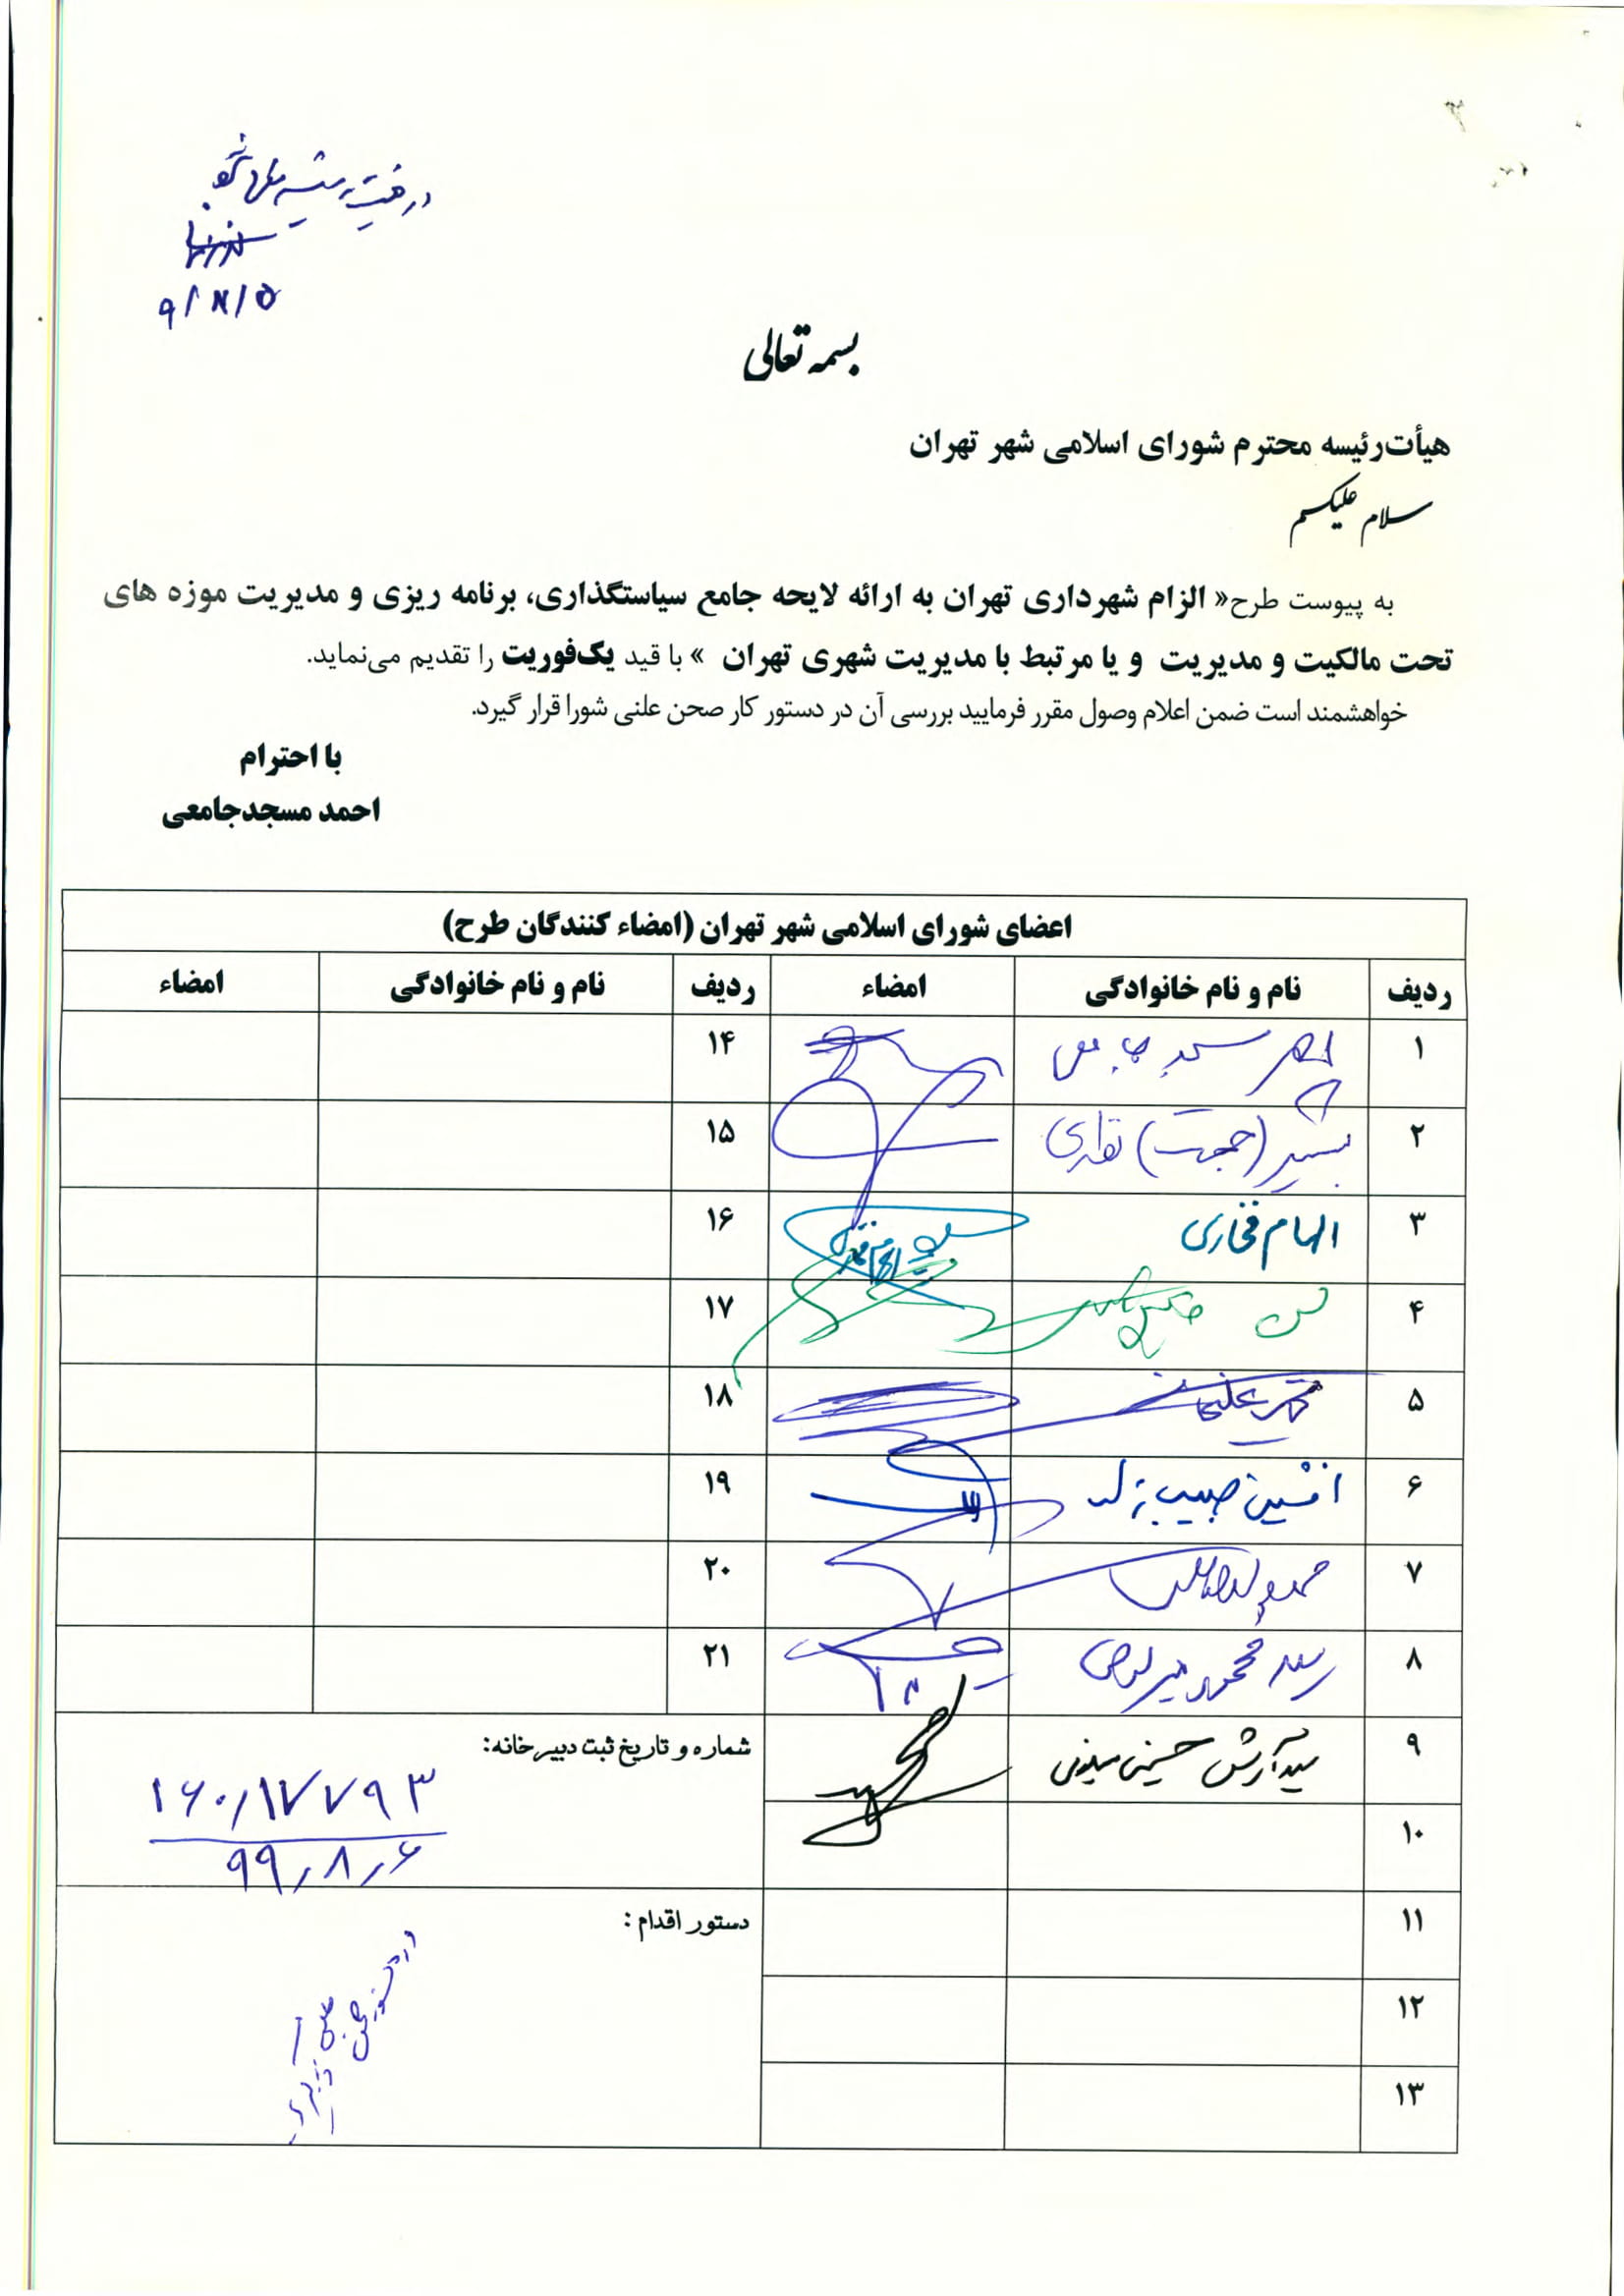 بسمه تعالی
هیأت‌رئیسه محترم شورای اسلامی شهر تهران
سلام علیکم
به پیوست طرح« الزام شهرداری تهران به ارائه لایحه جامع سیاستگذاری، برنامه ریزی و مدیریت موزه های
تحت مالکیت و مدیریت و یا مرتبط با مدیریت شهری تهران » با قید یک‌فوریت را تقدیم می‌نماید.
خواهشمند است ضمن اعلام وصول مقرر فرمایید بررسی آن در دستور کار صحن علنی شورا قرار گیرد.
با احترام
احمد مسجدجامعی
اعضای شورای اسلامی شهر تهران (امضاء کنندگان طرح)
ردیف نام و نام خانوادگی امضاء ردیف نام و نام خانوادگی امضاء
۱ احمد مسجد جامعی ۱۴
۲ بشیر (حجت) نظری ۱۵
۳ الهام فخاری ۱۶
۴ حسن ۱۷
۵ محمد علیخانی ۱۸
۶ افشین حبیب زاده ۱۹
۷ ۲۰
۸ سید محمود میرلوحی ۲۱
۹ سید آرش حسینی میلانی شماره و تاریخ ثبت دبیرخانه:
۱۶۰/۱۷۷۹۳
۹۹/۸/۶
۱۰
۱۱ دستور اقدام :
۱۲
۱۳